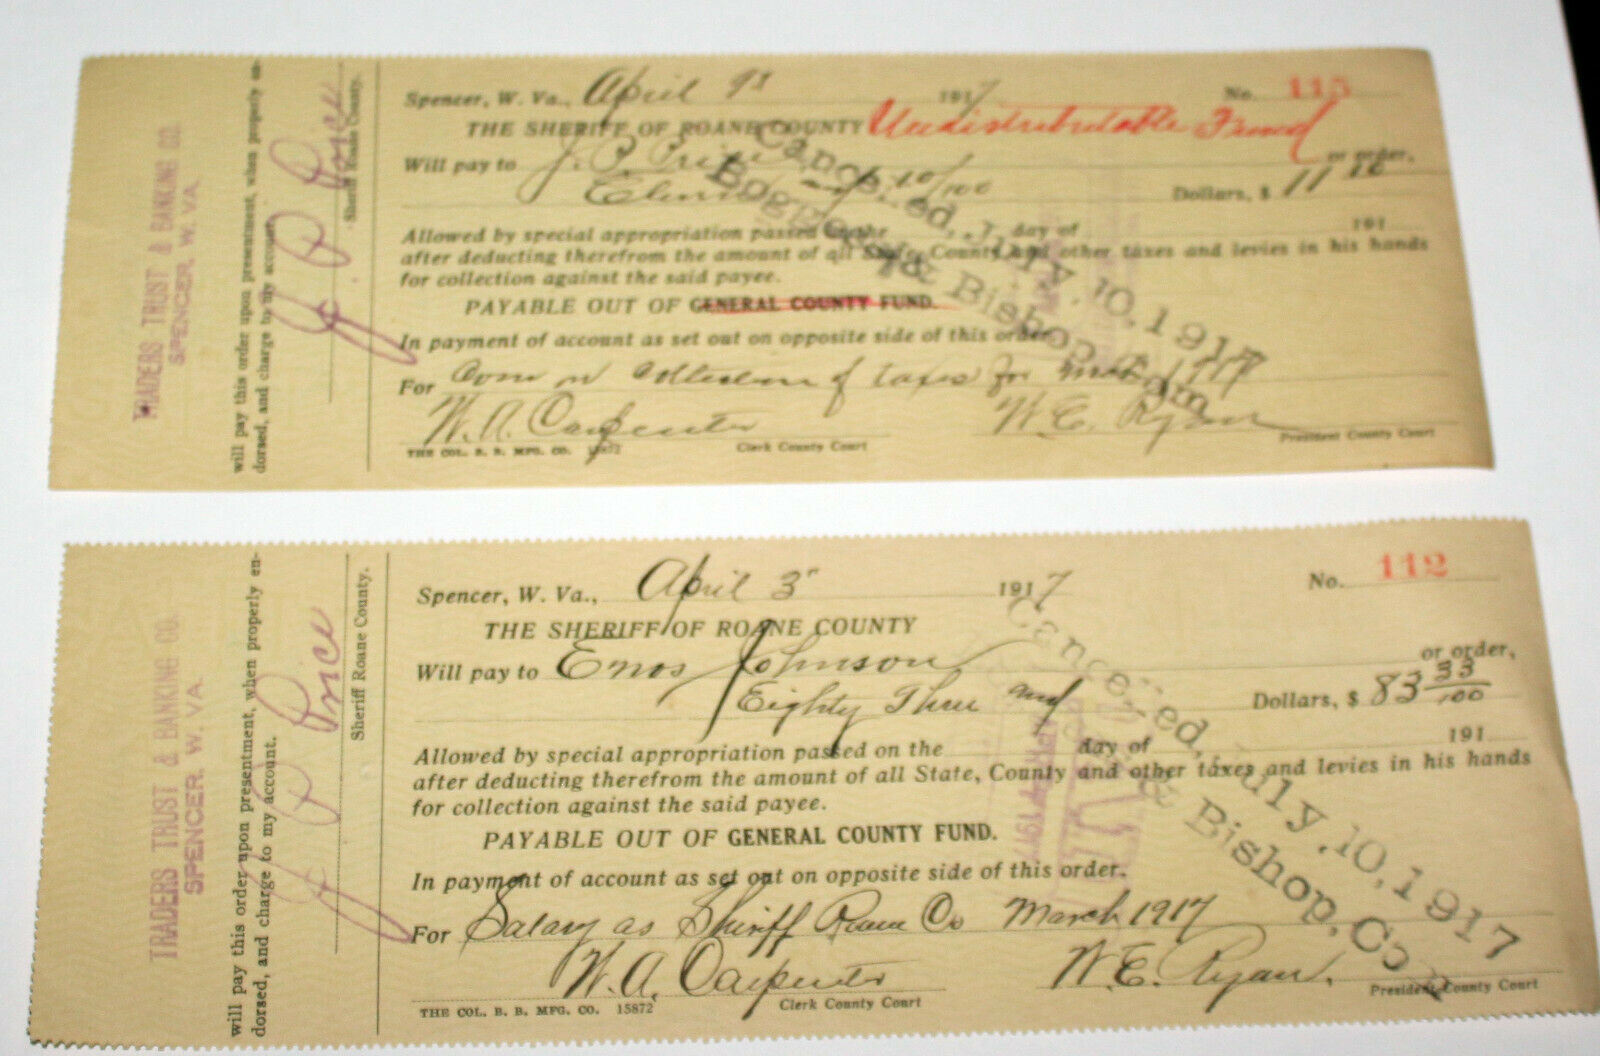 TRADERS TRUST & BANKING CO.
SPENCER, W. VA.
will pay this order upon presentment, when properly en-
dorsed, and charge to my account.
J P Price
Sheriff Roane County.
Spencer, W. Va., April 9" 1917 No. 115
THE SHERIFF OF ROANE COUNTY Undistributable Fund
Will pay to J. P. Price or order,
Eleven and 10/100 Dollars, $ 11 10
Allowed by special appropriation passed on the day of 191
after deducting therefrom the amount of all State, County and other taxes and levies in his hands
for collection against the said payee.
PAYABLE OUT OF GENERAL COUNTY FUND.
In payment of account as set out on opposite side of this order.
For Com on Collection of taxes for 1917
W. A. Carpenter W. E. Ryan
Clerk County Court President County Court
THE COL. B. B. MFG. CO. 15872
Cancelled, July, 10, 1917
& Bishop, Com
TRADERS TRUST & BANKING CO.
SPENCER, W. VA.
will pay this order upon presentment, when properly en-
dorsed, and charge to my account.
J P Price
Sheriff Roane County.
Spencer, W. Va., April 3" 1917 No. 112
THE SHERIFF OF ROANE COUNTY
Will pay to Enos Johnson or order,
Eighty Three and Dollars, $ 83 33/100
Allowed by special appropriation passed on the day of 191
after deducting therefrom the amount of all State, County and other taxes and levies in his hands
for collection against the said payee.
PAYABLE OUT OF GENERAL COUNTY FUND.
In payment of account as set out on opposite side of this order.
For Salary as Sheriff Roane Co March 1917
W. A. Carpenter W. E. Ryan.
Clerk County Court President County Court
THE COL. B. B. MFG. CO. 15872
Cancelled, July, 10, 1917
& Bishop, Co